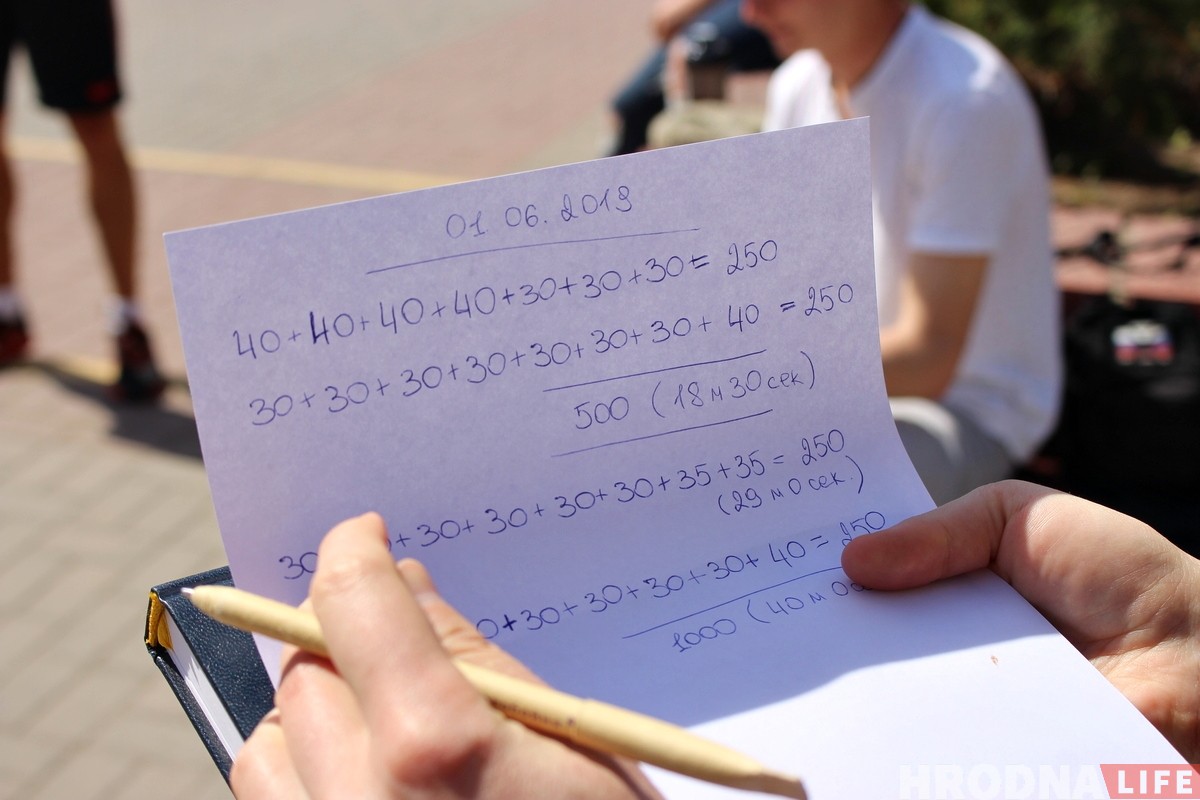 01 06. 2019
40+40+40+40+30+30+30= 250
30+30+30+30+30+30+30+ 40 = 250
500 (18 м 30 сек)
+30+30+30+30+35+35= 250
(29 м 0 сек.)
+30+30+30+30+40= 250
1000 (40 м
HRODNA LIFE